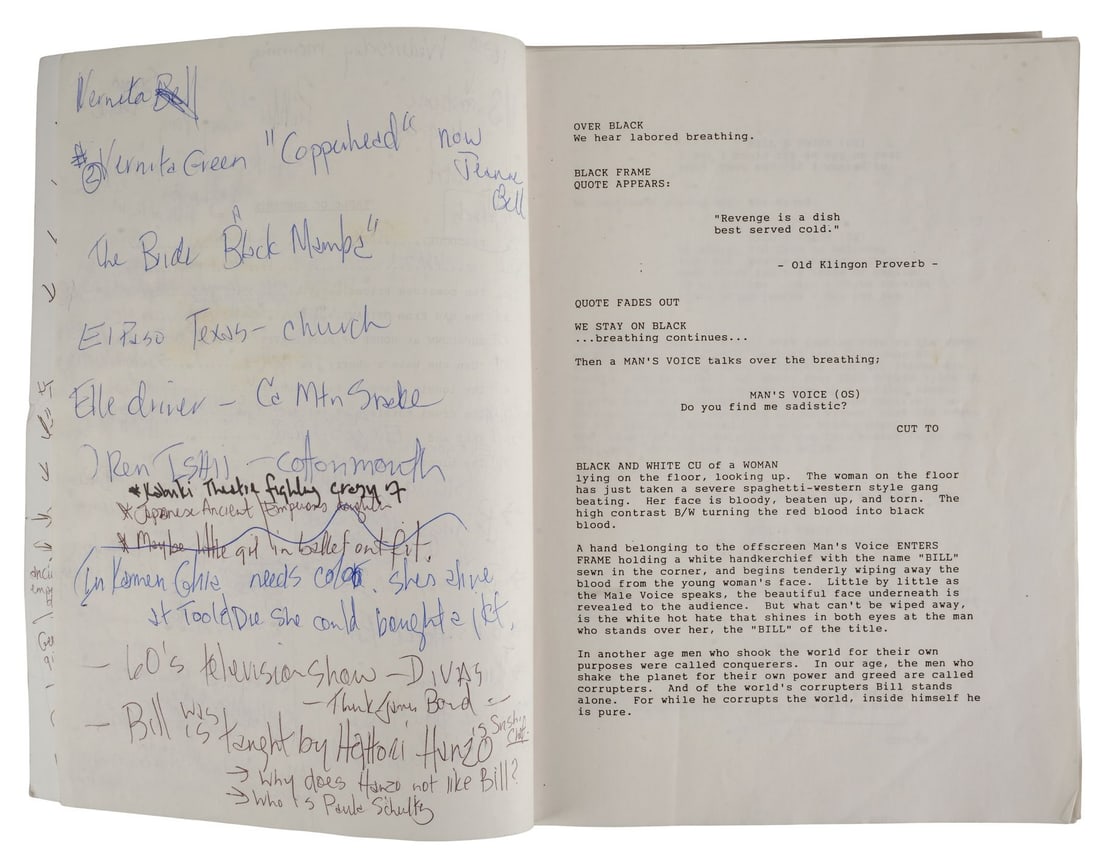 Vernita Bell
#2 Vernita Green "Copperhead" now
Jeanne
Bell
The Bride "Black Mamba"
El Paso Texas - church
Elle driver - Ca Mtn Snake
) Ren IsHii - cottonmouth
*Kabuki Theatre fighting crazy 7
*Japanese Ancient Emperors
*Maybe little girl in ballet outfit.
(In Karmen Ghia needs color. she's alive
at Toold Die she could bought a jkt.
- 60's television show - DIVAS
- Think James Bond -
- Bill was is taught by Hattori Hanzo is Sushi Chef-
→ Why does Hanzo not like Bill?
→ Who is Paula Schultz
OVER BLACK
We hear labored breathing.
BLACK FRAME
QUOTE APPEARS:
"Revenge is a dish
best served cold."
- Old Klingon Proverb -
QUOTE FADES OUT
WE STAY ON BLACK
...breathing continues...
Then a MAN'S VOICE talks over the breathing;
MAN'S VOICE (OS)
Do you find me sadistic?
CUT TO
BLACK AND WHITE CU of a WOMAN
lying on the floor, looking up. The woman on the floor
has just taken a severe spaghetti-western style gang
beating. Her face is bloody, beaten up, and torn. The
high contrast B/W turning the red blood into black
blood.
A hand belonging to the offscreen Man's Voice ENTERS
FRAME holding a white handkerchief with the name "BILL"
sewn in the corner, and begins tenderly wiping away the
blood from the young woman's face. Little by little as
the Male Voice speaks, the beautiful face underneath is
revealed to the audience. But what can't be wiped away,
is the white hot hate that shines in both eyes at the man
who stands over her, the "BILL" of the title.
In another age men who shook the world for their own
purposes were called conquerers. In our age, the men who
shake the planet for their own power and greed are called
corrupters. And of the world's corrupters Bill stands
alone. For while he corrupts the world, inside himself he
is pure.